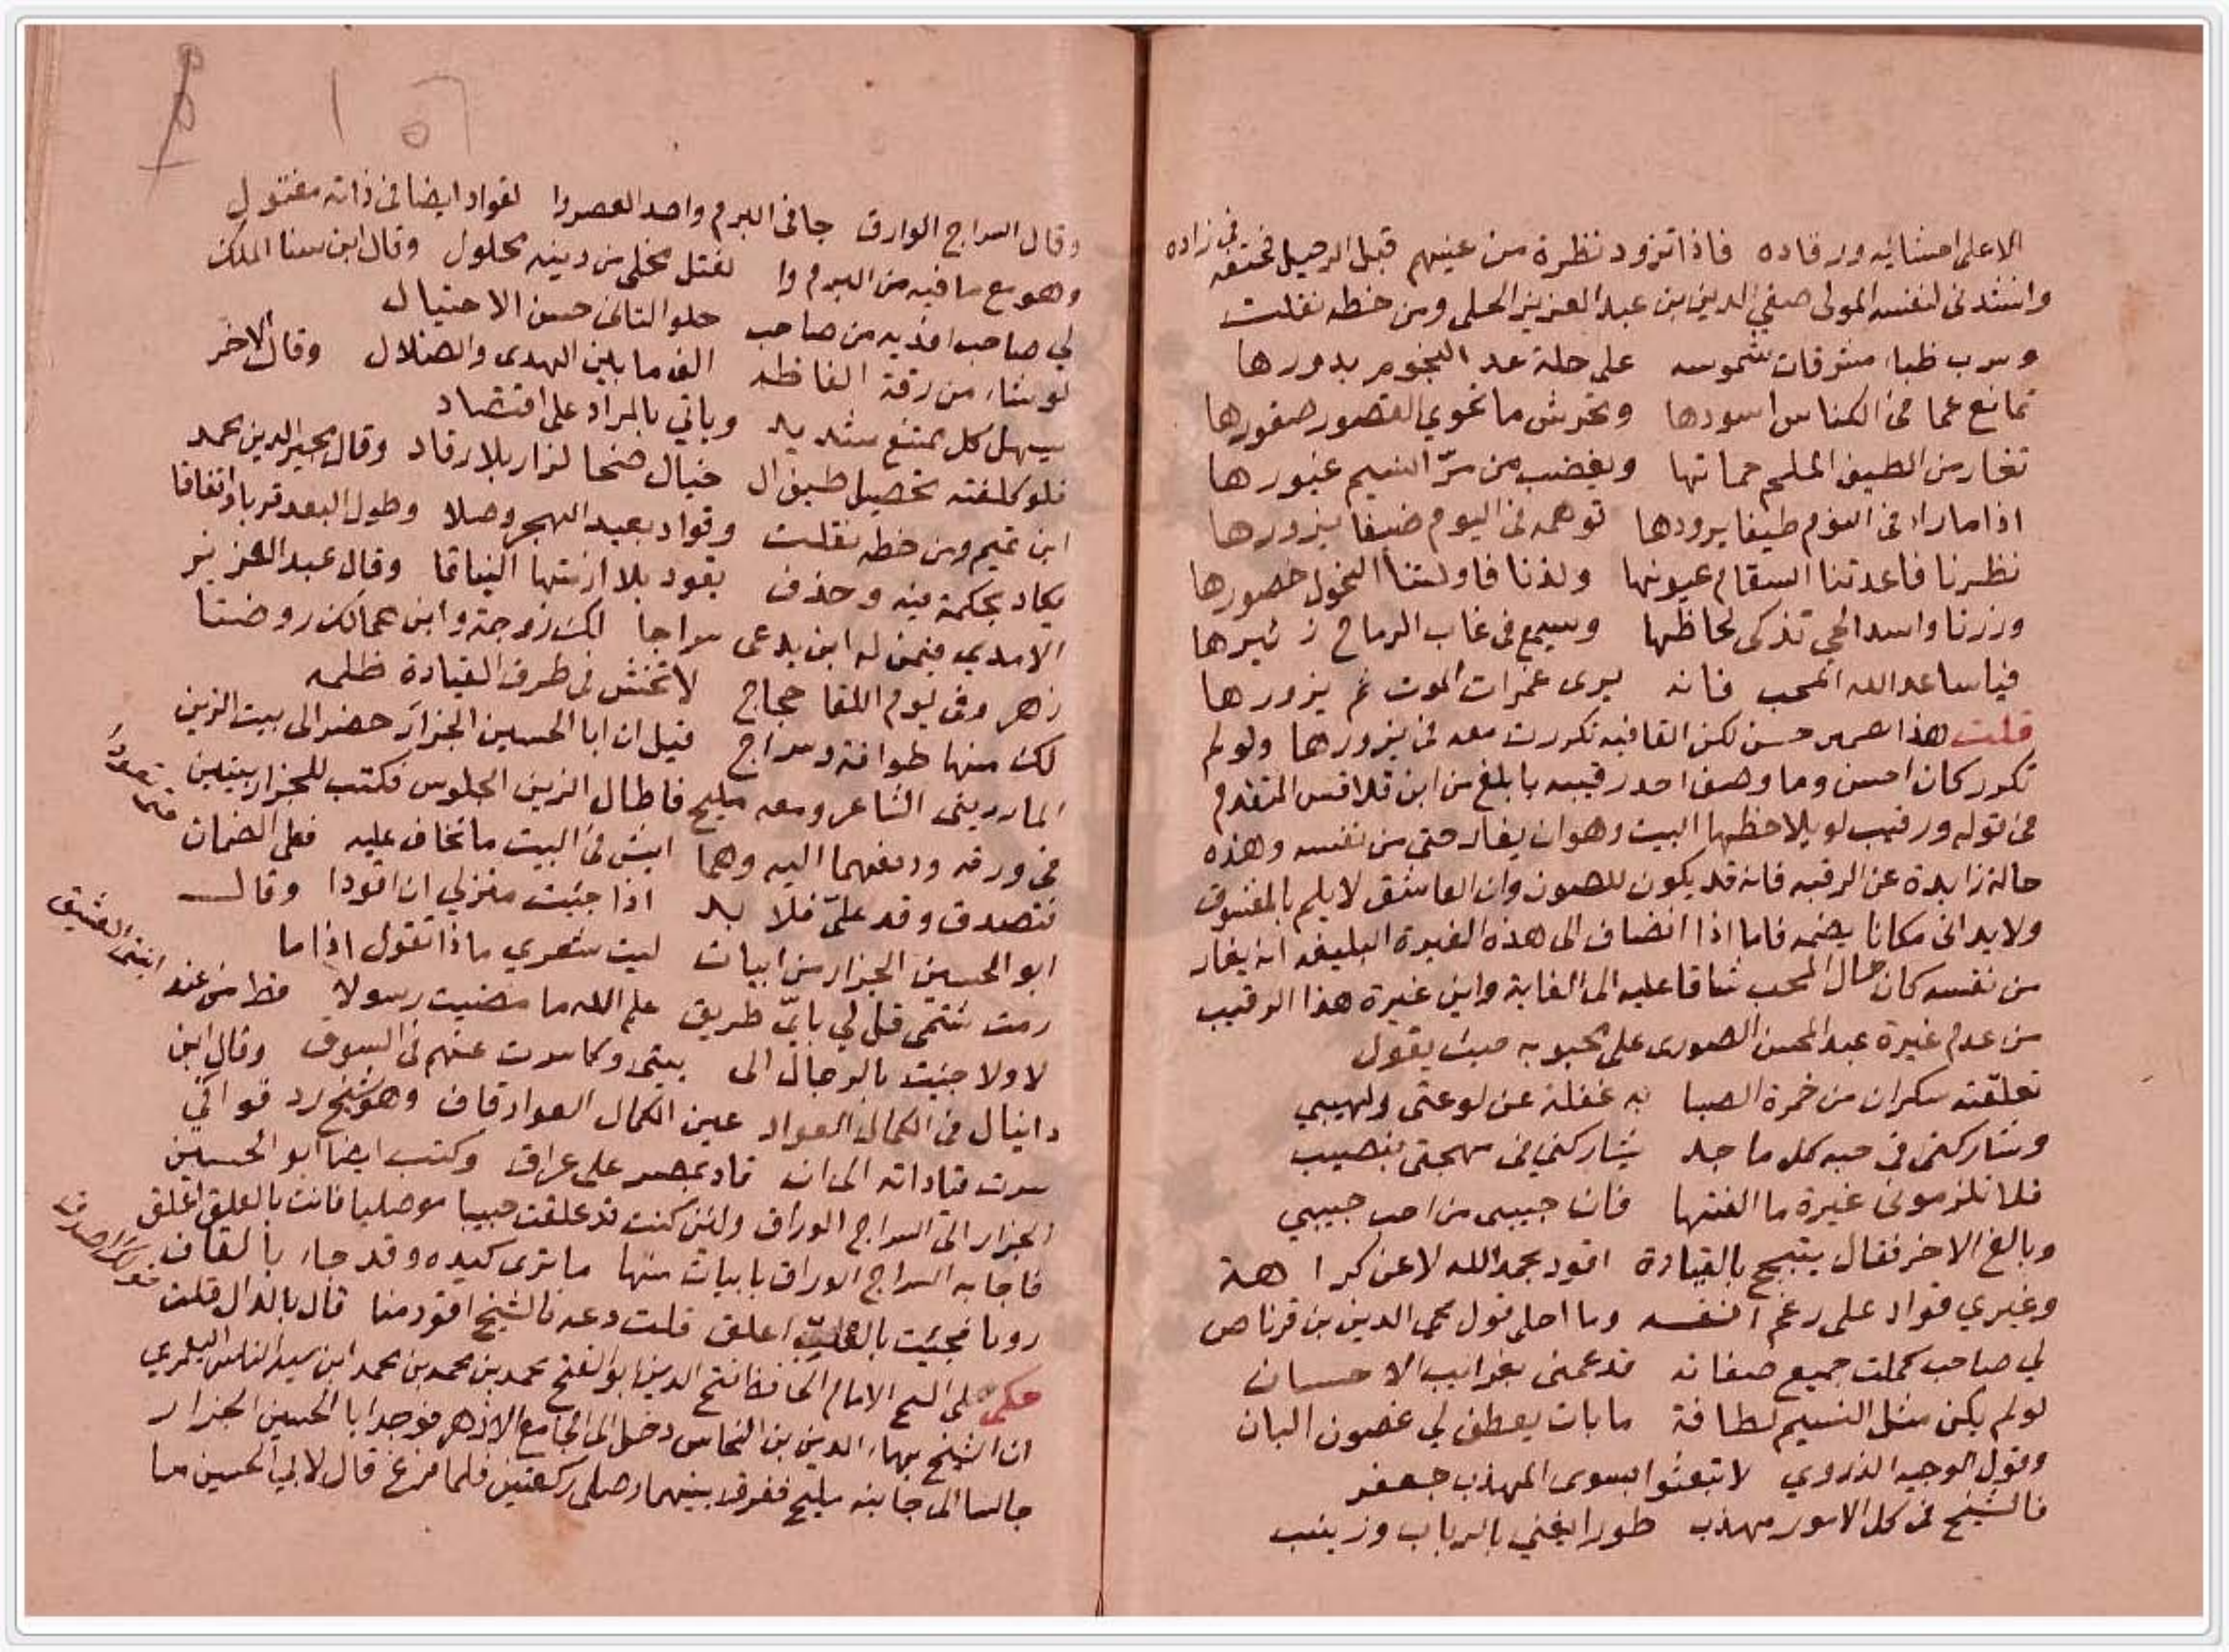 الا على احشائه ورقاده فاذا تزود نظرة من عينهم قبل الرحيل فحتفه في زاده
وانشدني لنفسه المولى صفي الدين بن عبد العزيز الحلي ومن خطه نقلت
وسرب ظباء مشرقات شموسه على حلة عد النجوم بدورها
تمانع عما في الكناس اسودها وتحرس ما تحوي القصور صقورها
تغار من الطيف الملم حماتها ويغضب من مرّ النسيم غيورها
اذا ما راى في النوم طيفا يرودها توهمه في اليوم ضيفا يزورها
نظرنا فاعدتنا السقام عيونها ولذنا فاولتنا النحول خصورها
وزرنا واسد الحي تذكى لحاظها ويسمع في غاب الرماح زئيرها
فيا ساعد الله المحب فانه يرى غمرات الموت ثم يزورها
قلت هذا حسن لكن القافيه تكررت معه في يزورها ولو لم
تكرر كان احسن وما وصف احد رقيبه بابلغ من ابن قلاقس المتقدم
في قوله ورقيب لو يلاحظها البيت وهو ان يغار حتى من نفسه وهذه
حالة زايدة عن الرقبه فانه قد يكون للصون وان العاشق لا يلم بالمعشوق
ولا يداني مكانا يضمه فاما اذا انضاف الى هذه الغيرة البليغه انه يغار
من نفسه كان حال المحب شاقا عليه الى الغاية واين غيرة هذا الرقيب
من عدم غيرة عبد المحسن الصوري على محبوبه حيث يقول
تعلقته سكران من خمرة الصبا به غفلة عن لوعتي ولهيبي
وشاركني في حبه كل ماجد يشاركني في مهجتي بنصيب
فلا تلزموني غيرة ما الفتها فان حبيبي من احب حبيبي
وبالغ الاخر فقال يتبجح بالقيادة اقود بحمد الله لا عن كراهة
وغيري قواد على رغم انفسه وما احلى قول محي الدين بن قرناص
لي صاحب كملت جميع صفاته قد عمني بغرايب الاحسان
لو لم يكن مثل النسيم لطافة ما بات يعطف لي غصون البان
وقول الوجيه الذروي لا تبعثوا بسوى المهذب جعفر
فالشيخ في كل الامور مهذب طورا يغني بالرباب وزينب
وقال السراج الوراق جافى البرم واحد العصر وا لقواد ايضا في ذاته مفتول
وهو مع ما فيه من البرم وا لفتل مخلى من دينه محلول وقال ابن سنا الملك
لي صاحب افديه من صاحب حلو التاني حسن الاحتيال
لو شاء من رقة الفاظه الف ما بين الهدى والضلال وقال الاخر
يسهل كل ممتنع شديد وياتي بالمراد على اقتصاد
فلو كلفته تحصيل طيف ال خيال ضحا لزار بلا رقاد وقال مجير الدين محمد
ابن تميم ومن خطه نقلت وقواد يعيد الهجر وصلا وطول البعد قربا واتفاقا
يكاد بحكمة فيه وحذف يقود بلا ازمتها النياقا وقال عبد العزيز
الامدي فيمن له ابن يدعى سراجا لك زوجة وابن همالك روضتا
زهر وفي يوم اللقا حجاج لا تخش في طرف القيادة ظلمه
لك منها طوافة وسراج قيل ان ابا الحسين الجزار حضر الى بيت الزين
المارديني الشاعر ومعه مليح فاطال الزين الجلوس فكتب للجزار بيتين
في ورقه ودفعهما اليه وهما ايش في البيت ما تخاف عليه فعلى الضمان
فتصدق وقد عليّ فلا بد اذا جئت منزلي ان اقودا وقال
ابو الحسين الجزار من ابيات ليت شعري ماذا تقول اذا ما
رمت شتمي قل لي بايّ طريق علم الله ما مضيت رسولا قط من عند ابنتي لعشيق
لا ولا جئت بالرجال الى بيتي وكاسرت عنهم في السوق وقال ابن
دانيال في الكمال القواد عين الكمال القواد قاف وهو شيخ رد قوافي
سرت قياداته الى ان قاد بمصر على عراق وكتب ايضا ابو الحسين
الجزار الى السراج الوراق ولئن كنت قد علقت حبيبا موصليا فانت بالعلق اعلق
فاجابه السراج الوراق بابيات منها ما ترى كيده وقد جاء بالقاف
رويا فجئت بالقلب اعلق قلت دعه فالشيخ اقود منا قال بالدال قلت
حكى لي الشيخ الامام الحافظ فتح الدين ابو الفتح محمد بن محمد بن محمد ابن سيد الناس اليعمري
ان الشيخ بهاء الدين بن النحاس دخل الى الجامع الازهر فوجد ابا الحسين الجزار
جالسا الى جانبه مليح ففرق بينهما وصلى ركعتين فلما فرغ قال لابي الحسين ما